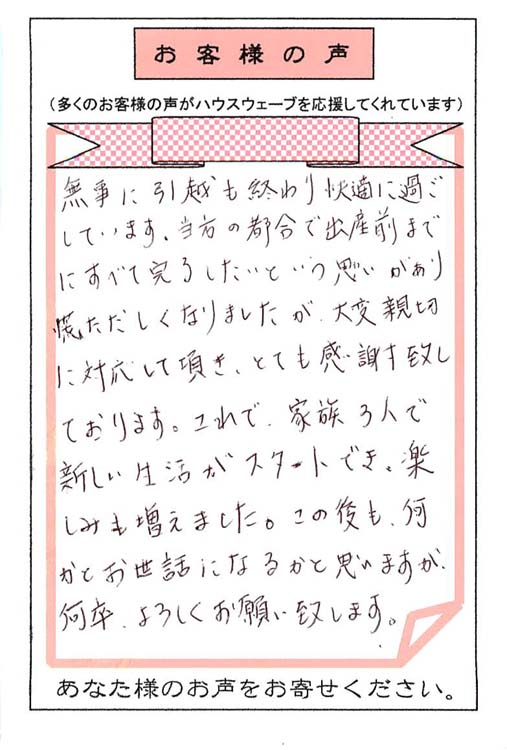 お客様の声
（多くのお客様の声がハウスウェーブを応援してくれています）
無事に引越も終わり快適に過ご
しています。当方の都合で出産前まで
にすべて完了したいという思いがあり
慌ただしくなりましたが、大変親切
に対応して頂き、とても感謝す致し
ております。これで、家族3人で
新しい生活がスタートでき、楽
しみも増えました。この後も、何
かとお世話になるかと思いますが、
何卒、よろしくお願い致します。
あなた様のお声をお寄せください。